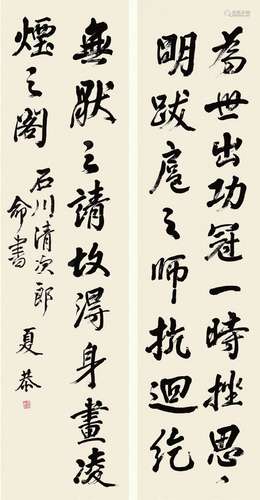 為世出功冠一時挫思
明跋扈之師抗迴紇
無猒之請故得身畫凌
煙之閣
石川清次郎
命書
夏恭